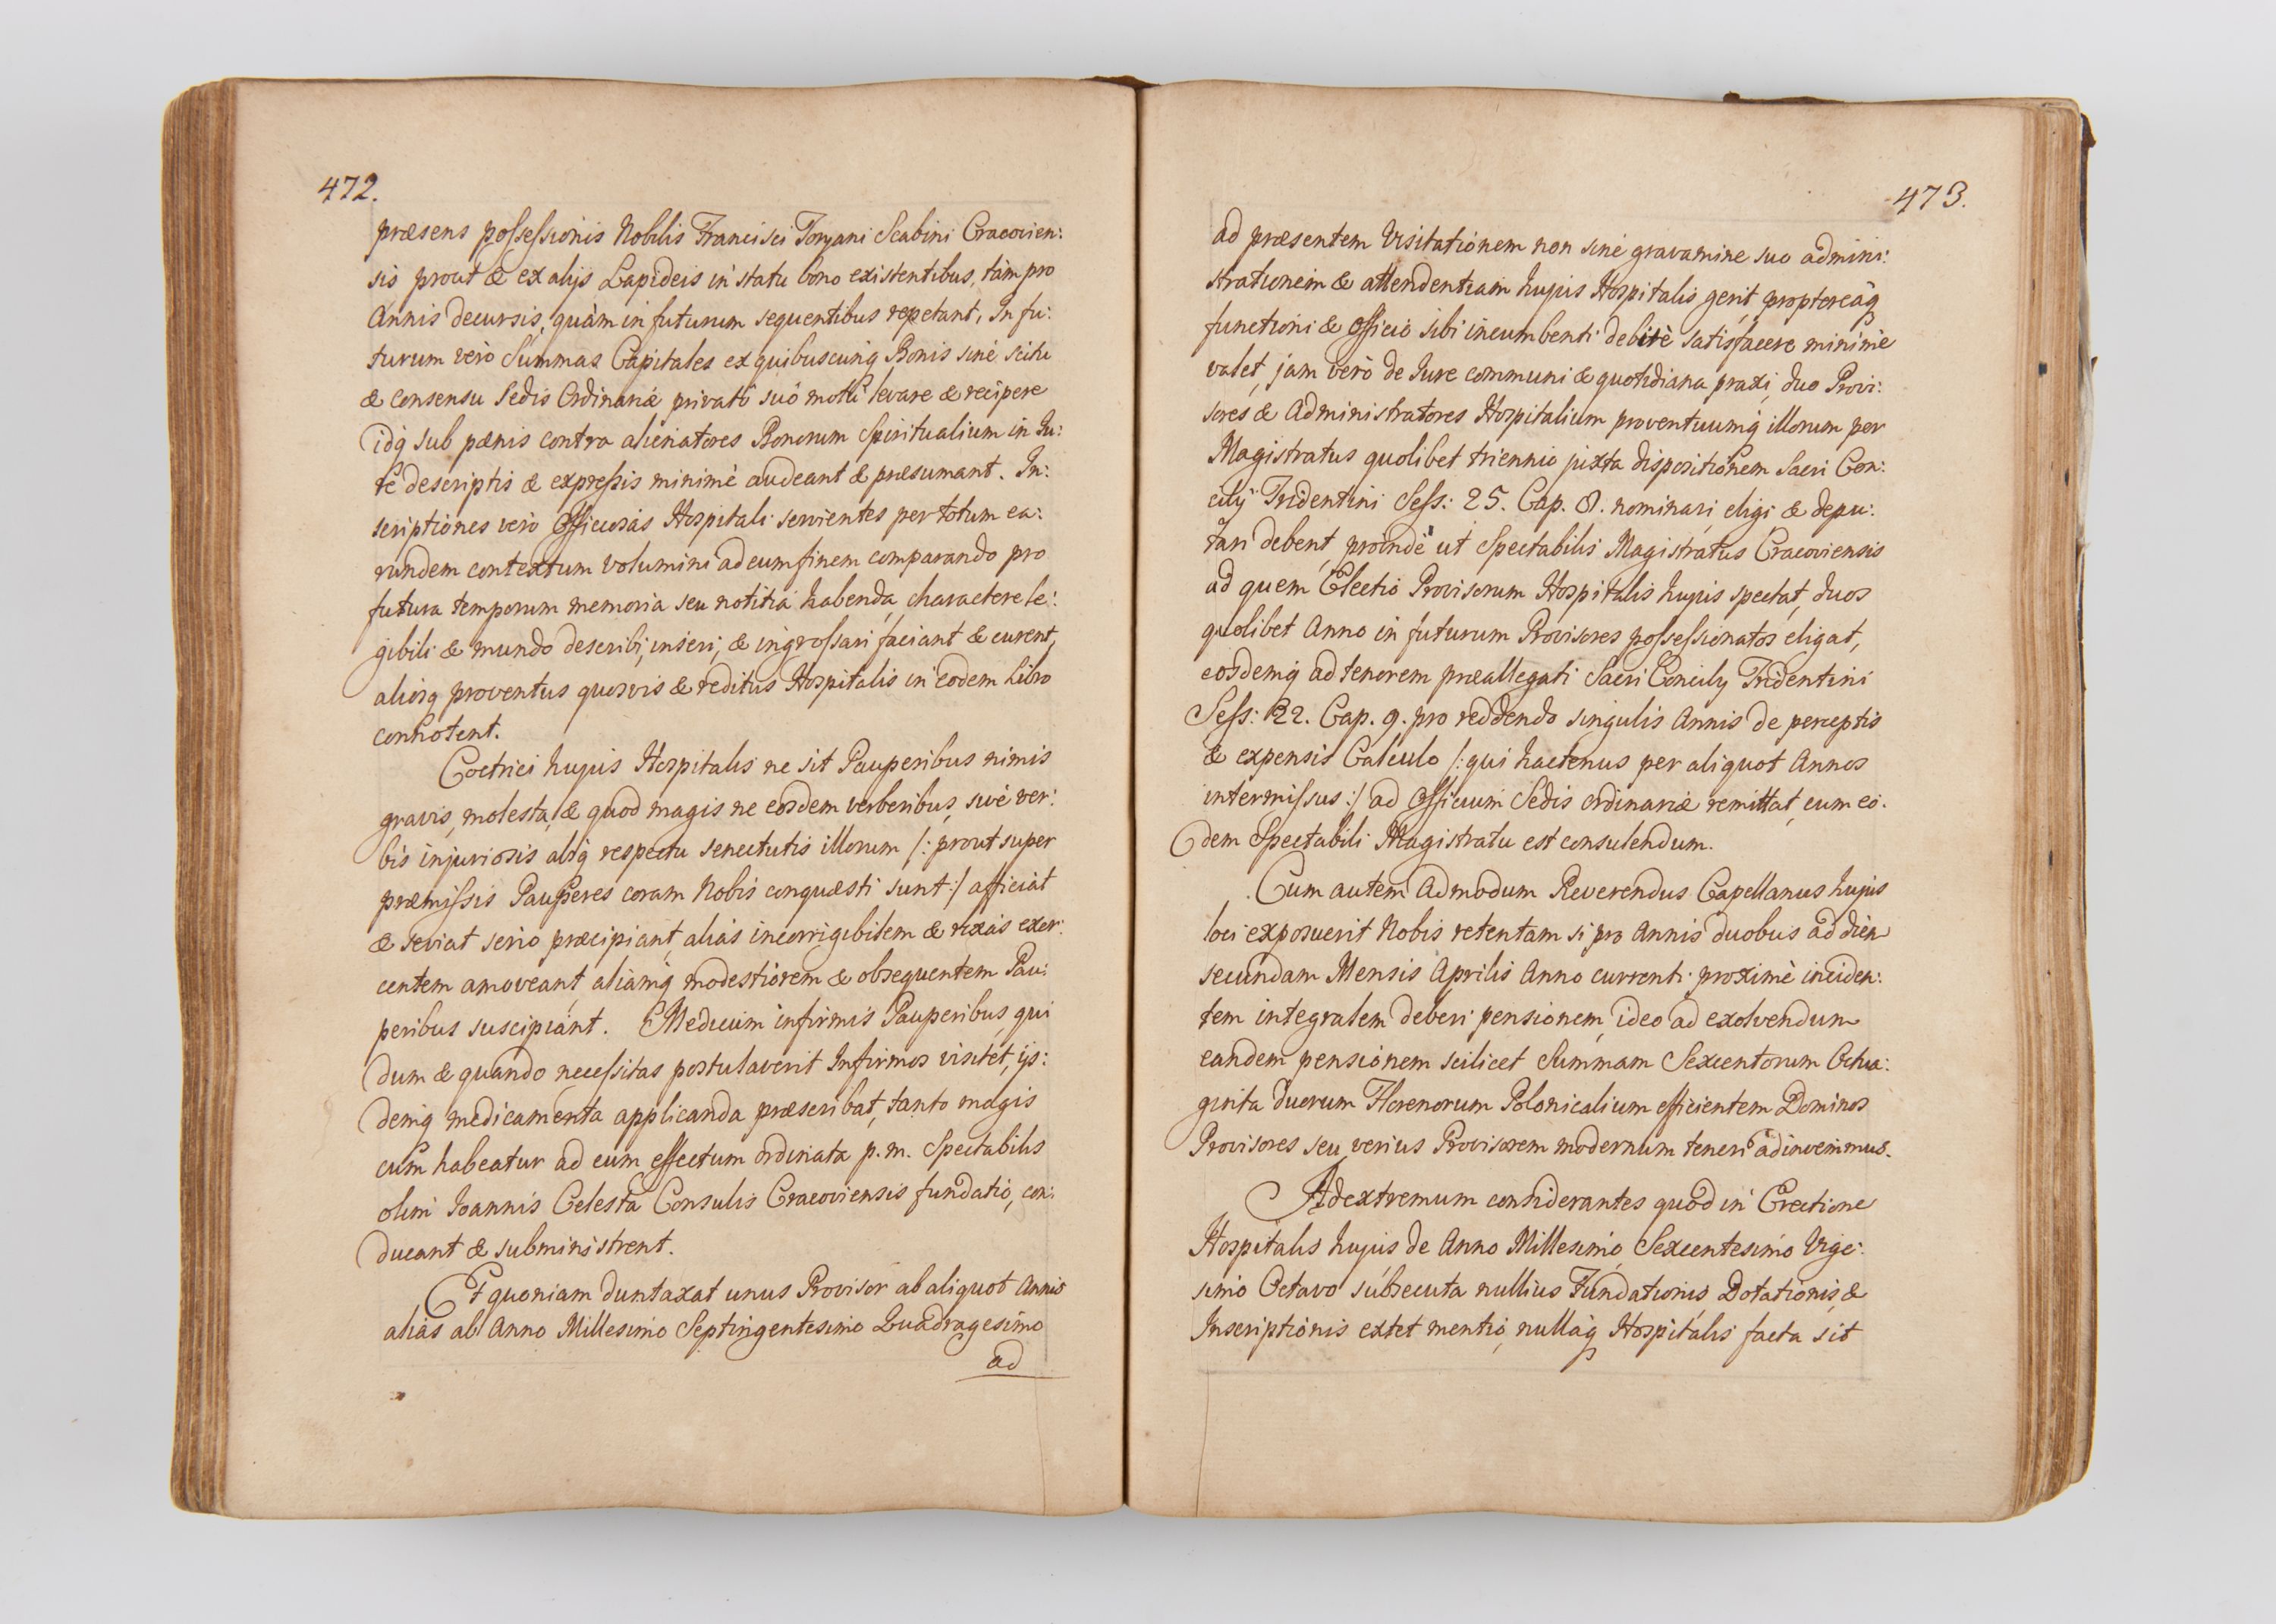 472.
præsens possessionis Nobilis Francisci Toryani Scabini Cracovien:
sis prout & ex alijs Lapideis in statu bono existentibus, tàm pro
Annis decursis, quàm in futurum sequentibus repetant, In fu:
turum verò Summas Capitales ex quibuscunq Bonis sinè scitu
& consensu Sedis Ordinariæ privatô suô motû levare & recipere
idq sub pænis contra alienatores Bonorum Spiritualium in Iu:
re descriptis & expressis minimè audeant & præsumant. In:
scriptiones verò Officiosas Hospitali servientes per totum ea:
rundem contextum volumini ad eum finem comparando pro
futura temporum memoria seu notitia habenda, charactere le:
gibili & mundo describi, inseri, & ingrossari faciant & curent,
aliosq proventus quosvis & reditus Hospitalis in eodem Libro
connotent.
Coctrici hujus Hospitalis ne sit Pauperibus nimis
gravis, molesta, & quod magis ne eosdem verberibus, sivè ver:
bis injuriosis absq respectu senectutis illorum /: prout super
præmissis Pauperes coram Nobis conquæsti sunt :/ afficiat
& sæviat serio præcipiant, alias incorrigibilem & rixas exer:
centem amoveant, aliamq modestiorem & obsequentem Pau:
peribus suscipiant. Medicum infirmis Pauperibus, qui
dum & quando necessitas postulaverit Infirmos visitet, ijs:
demq medicamenta applicanda præscribat, tanto magis
cum habeatur ad eum effectum ordinata p. m. Spectabilis
olim Ioannis Celesta Consulis Cracoviensis fundatio, con:
ducant & subministrent.
Et quoniam duntaxat unus Provisor ab aliquot Annis
alias ab Anno Millesimo Septingentesimo Quadragesimo
ad
473.
ad præsentem Visitationem non sinè gravamine suo admini:
strationem & attendentiam hujus Hospitalis gerit, proptereàq
functioni & Officio sibi incumbenti debitè satisfacere minimè
valet, jam verò de Iure communi & quotidiana praxi, duo Provi:
sores & Administratores Hospitalium proventuumq illorum per
Magistratus quolibet triennio juxta dispositionem Sacri Con:
cilij Tridentini Sess: 25. Cap. 8. nominari, eligi & depu:
tari debent, proindè ut Spectabilis Magistratus Cracoviensis
ad quem Electio Provisorum Hospitalis hujus spectat, duos
quolibet Anno in futurum Provisores possessionatos eligat,
eosdemq ad tenorem præallegati Sacri Concilij Tridentini
Sess: 22. Cap. 9. pro reddendo singulis Annis de perceptis
& expensis Calculo /: qui hactenus per aliquot Annos
intermissus :/ ad Officium Sedis ordinariæ remittat, cum eo:
dem Spectabili Magistratu est consulendum.
Cum autem Admodum Reverendus Capellanus hujus
loci exposuerit Nobis retentam si pro Annis duobus ad diem
secundam Mensis Aprilis Anno currenti proximè inciden:
tem integralem deberi pensionem, ideo ad exolvendum
eandem pensionem scilicet Summam Sexcentorum Octua:
ginta duorum Florenorum Polonicalium efficientem Dominos
Provisores seu verius Provisorem modernum teneri adinvenimus.
Ad extremum considerantes quod in Erectione
Hospitalis hujus de Anno Millesimo Sexcentesimo Vige:
simo Octavo subsecuta nullius Fundationis, Dotationis, &
Inscriptionis extet mentio, nullaq Hospitalis facta sit